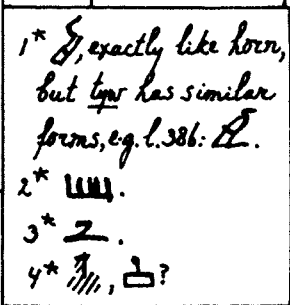 1* , exactly like horn,
but tpw has similar
forms, e.g. l. 386: .
2* .
3* .
4* , ?